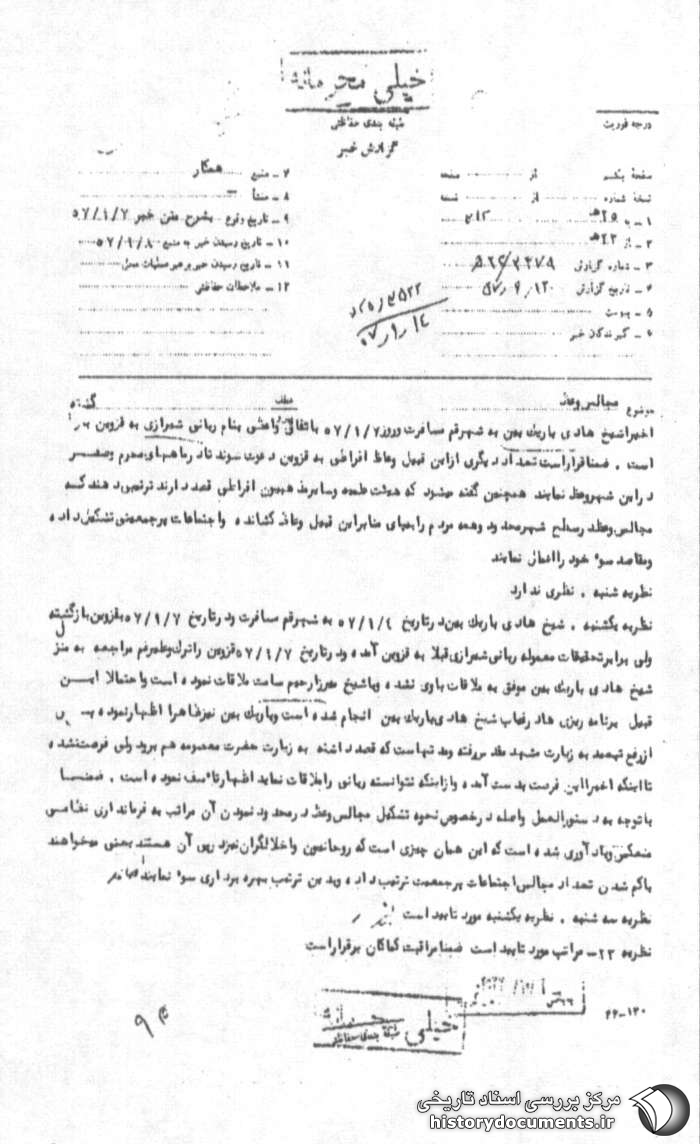 خیلی محرمانه
طبقه بندی حفاظتی
گزارش خبر
درجه فوریت
صفحه یکم از صفحه
نسخه شماره از نسخه
۱ ـ به ۲۵ هـ ۳۱۲
۲ ـ از ۲۳ هـ
۳ ـ شماره گزارش
۴ ـ تاریخ گزارش
۵ ـ پیوست
۶ ـ گیرندگان خبر
۷ ـ منبع همکار
۸ ـ منشأ
۹ ـ تاریخ وقوع بشرح متن خبر ۵۷/۱/۷
۱۰ ـ تاریخ رسیدن خبر به منبع ۵۷/۹/۸
۱۱ ـ تاریخ رسیدن خبر برهبر عملیات محل
۱۲ ـ ملاحظات حفاظتی
موضوع مجالس وعظ
اخیرا شیخ هادی باریک بین به شهر قم مسافرت و روز ۵۷/۱/۷ باتفاق واعظی بنام ربانی شیرازی به قزوین
است . ضمنا قرار است تعداد دیگری از این قبیل وعاظ افراطی به قزوین دعوت شوند تا در ماههای محرم و صفر
در این شهر وعظ نمایند همچنین گفته میشود که هیئت علمیه و سایر مذهبیون افراطی قصد دارند ترتیبی دهند که
مجالس وعظ در سطح شهر محدود و همه مردم را بپای منابر این قبیل وعاظ کشانده و اجتماعات پر جمعیتی تشکیل داده
و مقاصد سوء خود را اعمال نمایند
نظریه شنبه . نظری ندارد
نظریه یکشنبه . شیخ هادی باریک بین در تاریخ ۵۷/۱/۴ به شهر قم مسافرت و در تاریخ ۵۷/۱/۷ بقزوین بازگشته
ولی برابر تحقیقات معموله ربانی شیرازی قبلا به قزوین آمده و در تاریخ ۵۷/۱/۷ قزوین را ترک و علیرغم مراجعه به منزل
شیخ هادی باریک بین موفق به ملاقات با وی نشده و با شیخ میرزا رحیم سامت ملاقات نموده است و احتمالا این
قبیل برنامه ریزی ها در غیاب شیخ هادی باریک بین انجام شده است و باریک بین نیز ظاهرا اظهار نموده پس
از رفع تبعید به زیارت مشهد مقدس رفته و مدتهاست که قصد داشته به زیارت حضرت معصومه هم برود ولی فرصت نشده
تا اینکه اخیرا این فرصت بدست آمده و از اینکه نتوانسته ربانی را ملاقات نماید اظهار تأسف نموده است . ضمنا
با توجه به دستورالعمل واصله در خصوص نحوه تشکیل مجالس وعظ و محدود نمودن آن مراتب به فرمانداری نظامی
منعکس و یادآوری شده است که این همان چیزی است که روحانیون و اخلالگران نیز در پی آن هستند یعنی میخواهند
با کم شدن تعداد مجالس اجتماعات پرجمعیت ترتیب داده و بدین ترتیب بهره برداری سوء نمایند
نظریه سه شنبه . نظریه یکشنبه مورد تایید است
نظریه ۲۳ـ مراتب مورد تایید است ضمنا مراقبت کماکان برقرار است
خیلی محرمانه
طبقه بندی حفاظتی
مرکز بررسی اسناد تاریخی
historydocuments.ir